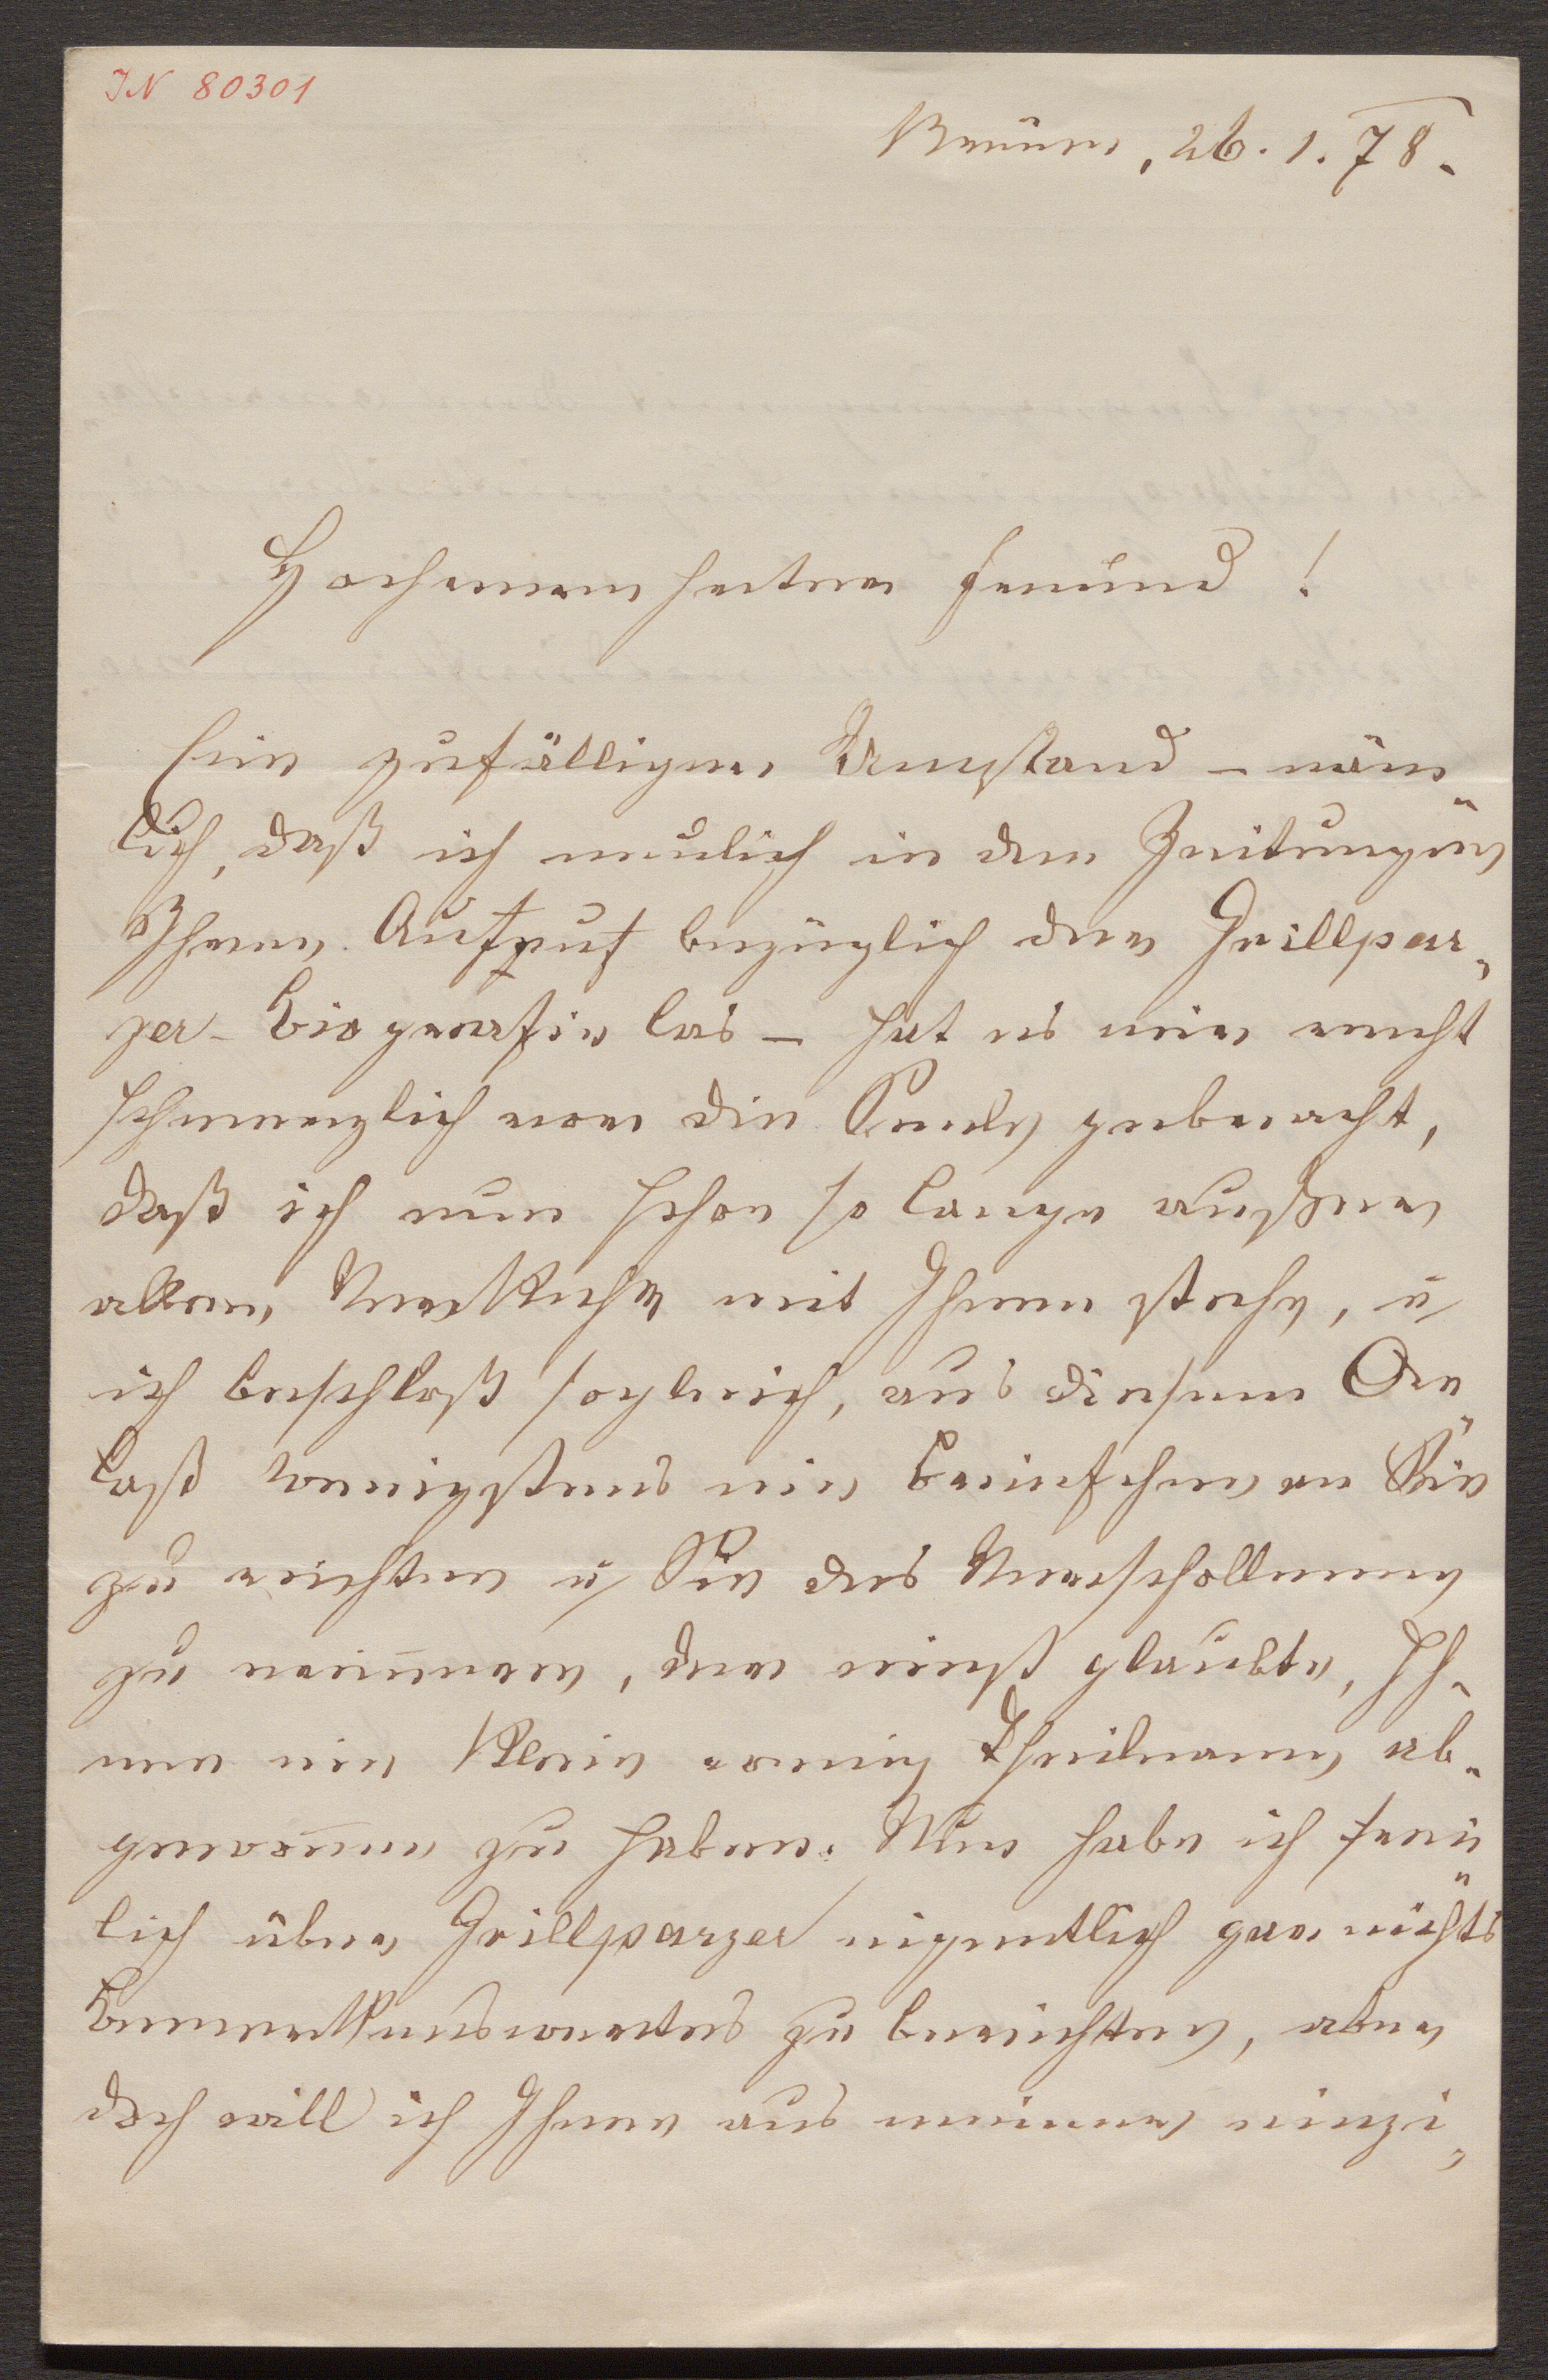 IN 80301
Brünn, 26. 1. 78.
Hochverehrter Freund!
Ein zufälliger Umstand – näm„
lich, daß ich neulich in den Zeitungen
Ihren Aufruf bezüglich der Grillpar„
zer-Biografie las – hat es mir recht
schmerzlich vor die Seele gebracht,
daß ich nun schon so lange außer
allem Verkehr mit Ihnen stehe, u
ich beschloß sogleich, aus diesem An„
laß wenigstens ein Brieferl an Sie
zu richten u Sie des Verschollenen
zu erinnern, der einst glaubte, Ih-
nen ein klein wenig Theilname ab-
genommen zu haben. Nun habe ich frei„
lich über Grillparzer eigentlich gar nichts
Bemerkenswertes zu berichten, aber
doch will ich Ihnen aus meiner einzi„